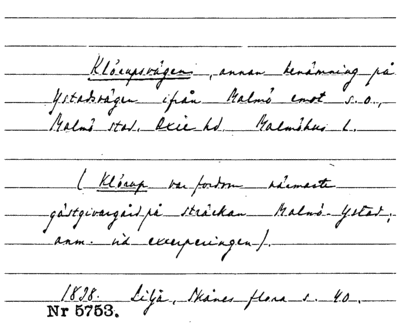 Klörupsvägen, annan benämning på
Ystadsvägen ifrån Malmö emot s.o.,
Malmö stad, Oxie hd. Malmöhus l.
(Klörup var fordom närmaste
gästgivargård på sträckan Malmö-Ystad,
anm. vid excerperingen).
1838. Lilja, Skånes flora s. 40.
Nr 5753.